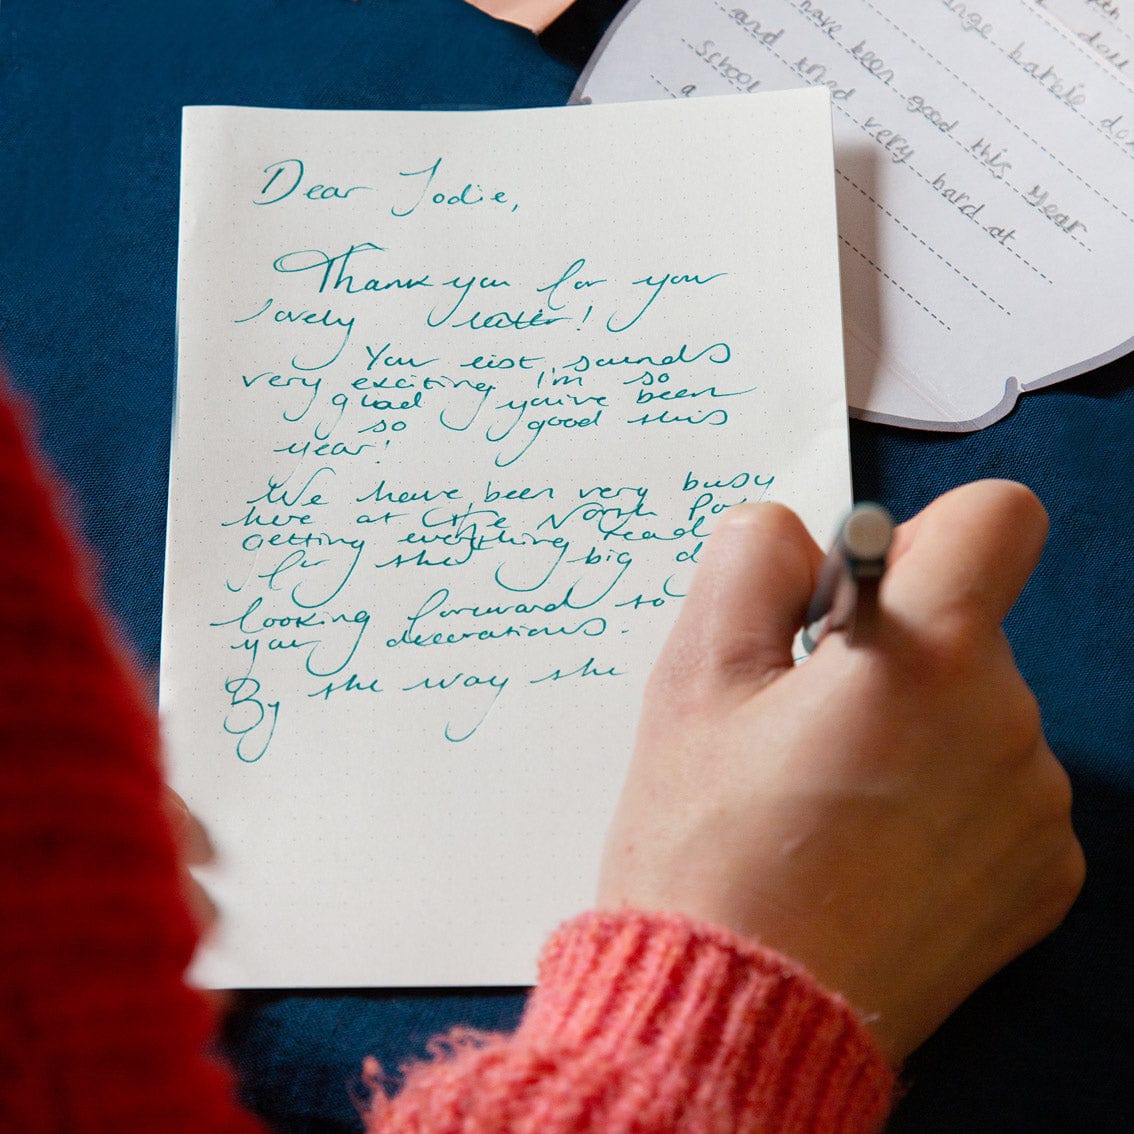 Dear Jodie,
Thank you for your
lovely letter!
Your list sounds
very exciting I'm so
glad you've been
so good this
year!
We have been very busy
here at the North Pol
getting everything read
for the big d
looking forward to
your decorations.
By the way the
doll
nge barbie do
have been good this year
and tried very hard at
school
a